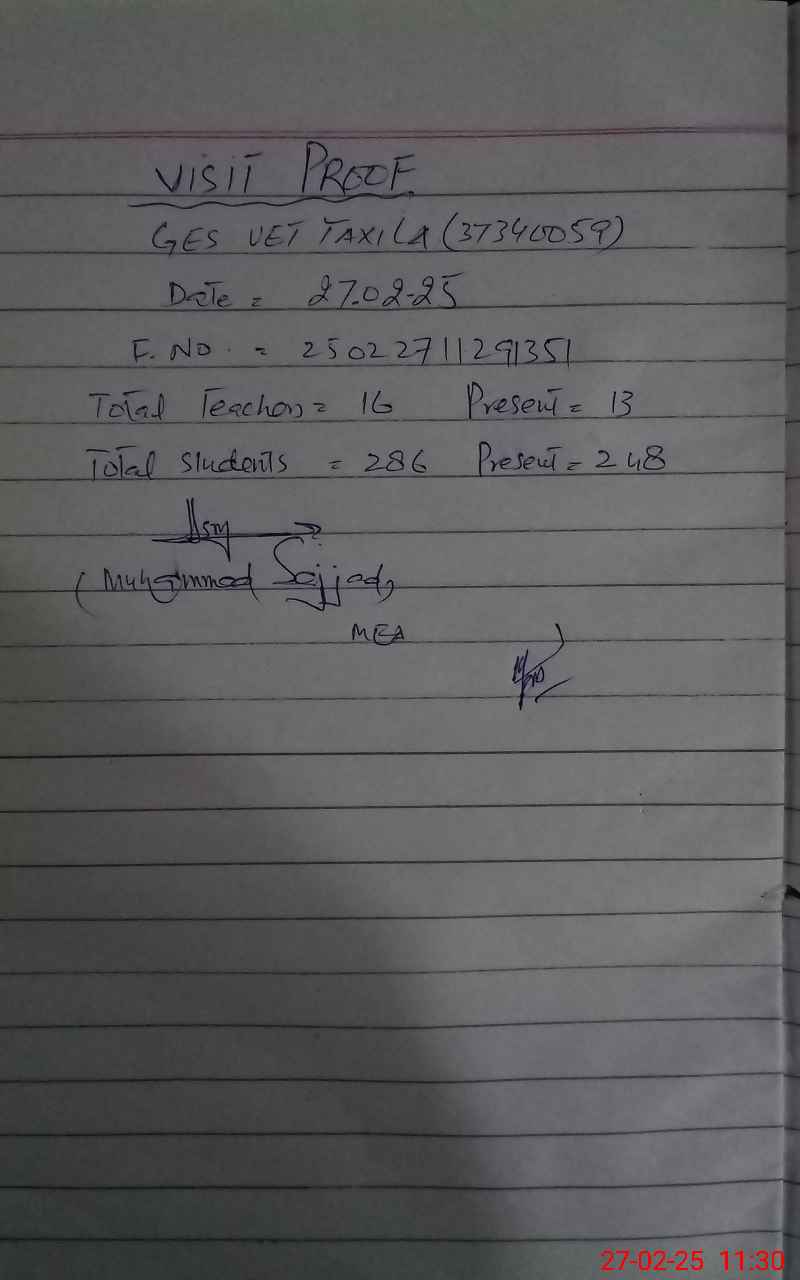 VISIT PROOF
GES VET TAXILA (37340059)
Date = 27.02.25
F. NO. = 25022711291351
Total Teachers = 16 Present = 13
Total Students = 286 Present = 248
(Muhammad Sajjad,
MEA
)
27-02-25 11:30